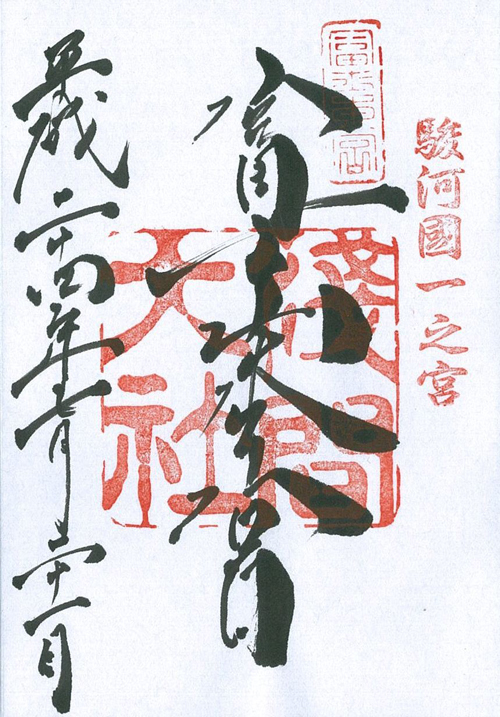 駿河國一之宮
富士本宮
富士本宮
淺間
大社
平成二十四年七月二十一日